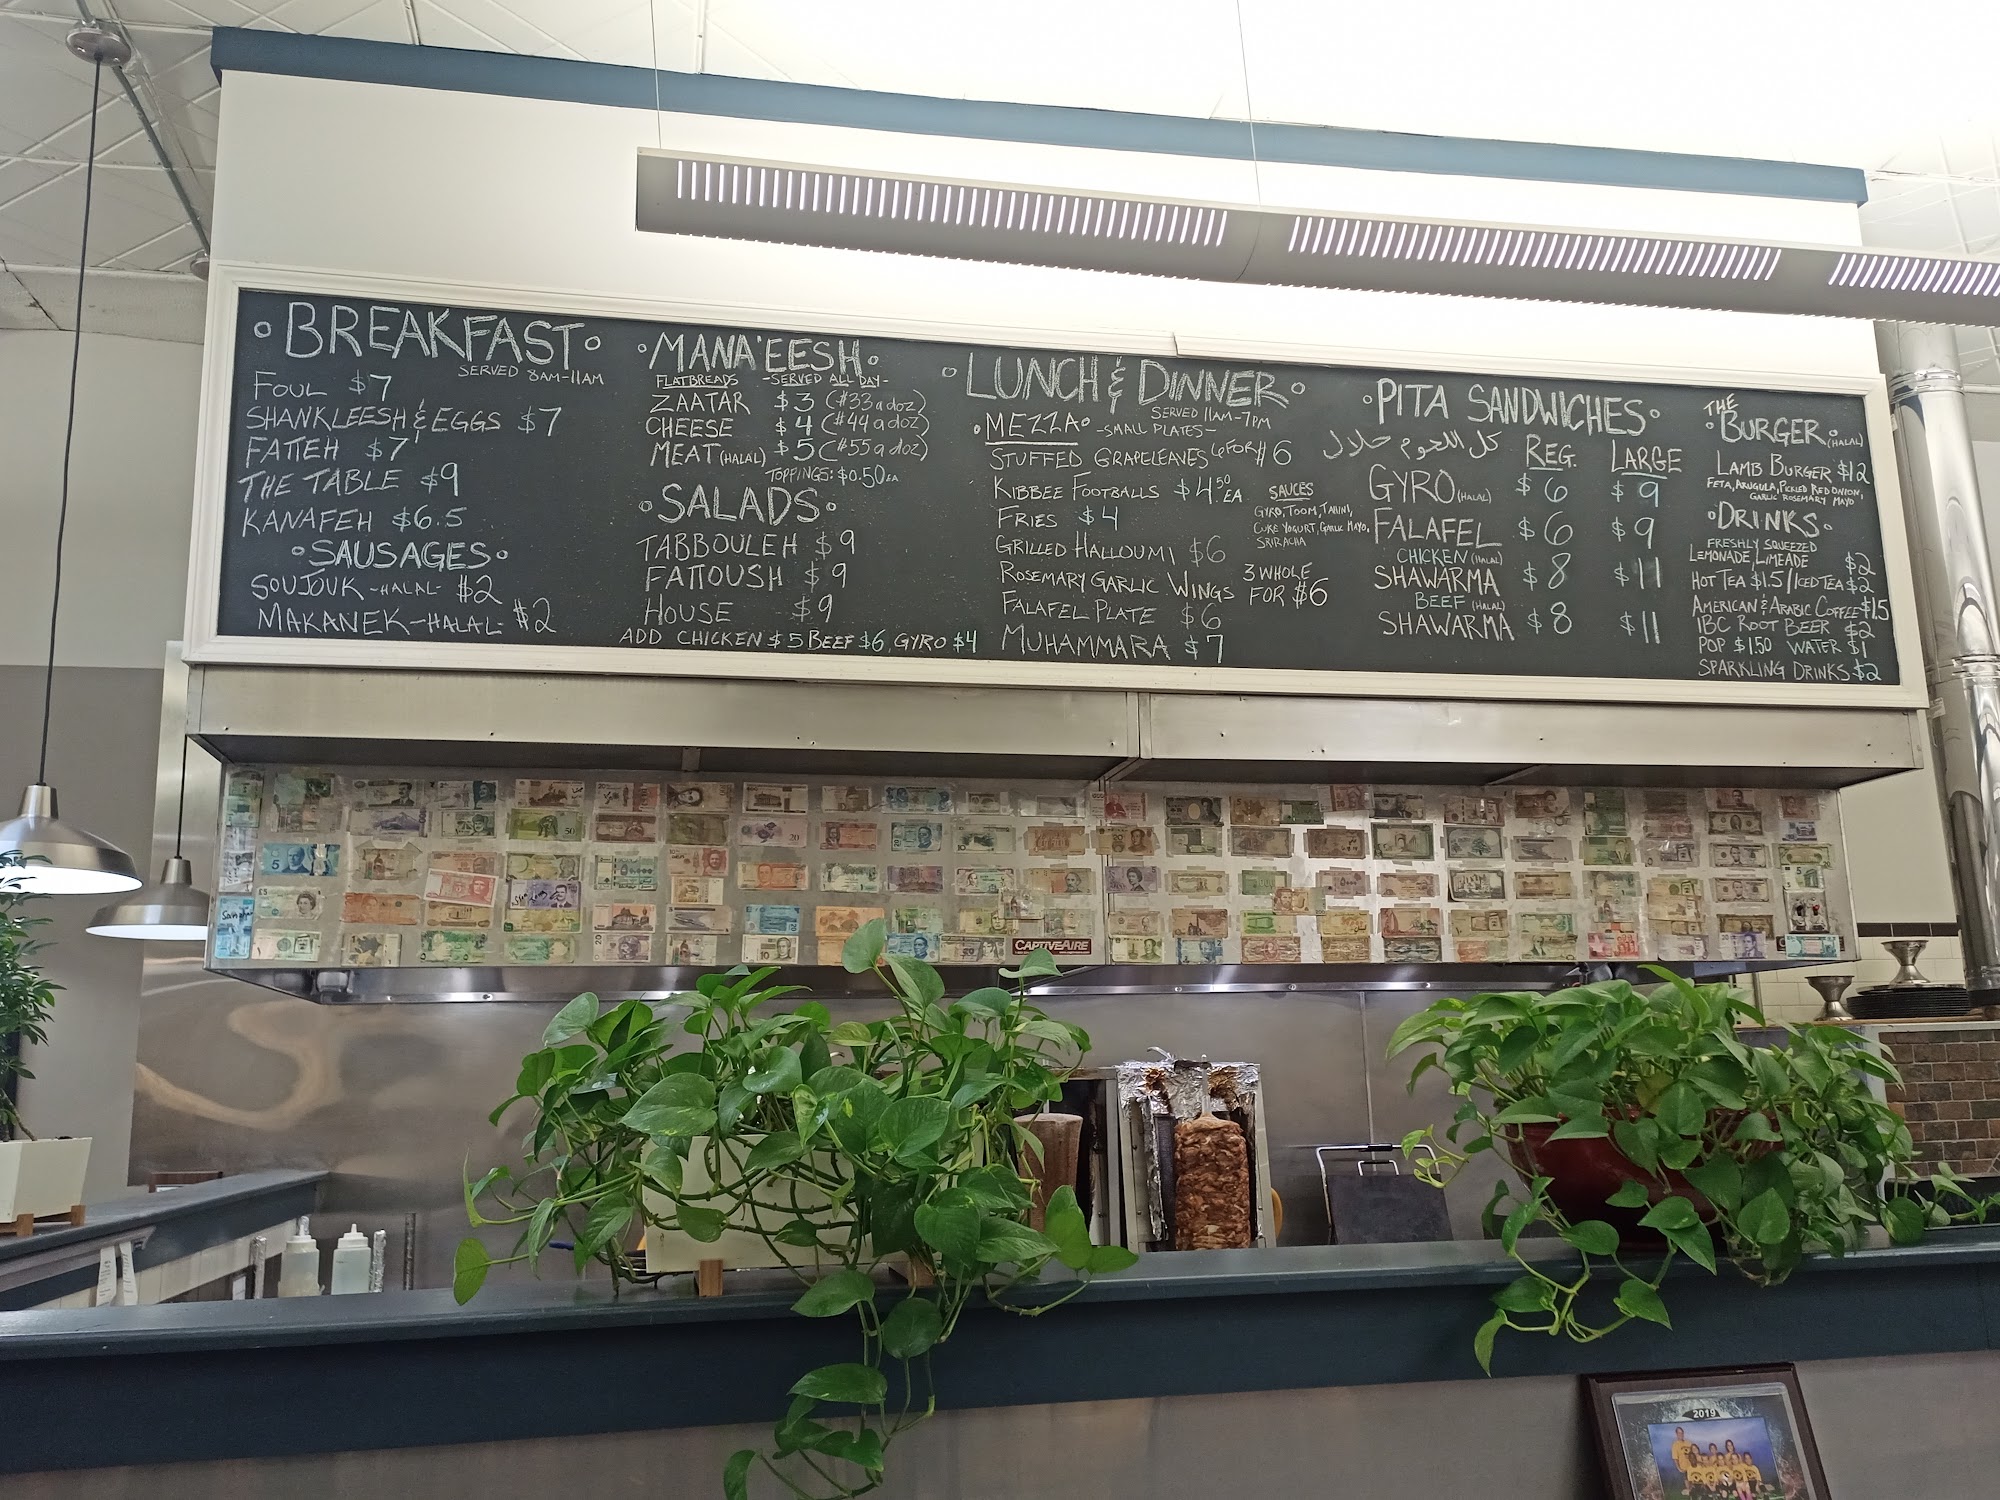 BREAKFAST
SERVED 8AM-11AM
FOUL $7
SHANKLEESH & EGGS $7
FATTEH $7
THE TABLE $9
KANAFEH $6.5
SAUSAGES
SOUJOUK -HALAL- $2
MAKANEK -HALAL- $2
MANA'EESH
FLATBREADS -SERVED ALL DAY-
ZAATAR $3 ($33 a doz)
CHEESE $4 ($44 a doz)
MEAT (HALAL) $5 ($55 a doz)
TOPPINGS: $0.50 EA
SALADS
TABBOULEH $9
FATTOUSH $9
HOUSE $9
ADD CHICKEN $5 BEEF $6, GYRO $4
LUNCH & DINNER
SERVED 11AM-7PM
MEZZA
-SMALL PLATES-
STUFFED GRAPELEAVES 6 FOR $6
KIBBEE FOOTBALLS $4.50 EA
FRIES $4
GRILLED HALLOUMI $6
ROSEMARY GARLIC WINGS 3 WHOLE FOR $6
FALAFEL PLATE $6
MUHAMMARA $7
SAUCES
GYRO, TOOM, TAHINI,
CUKE YOGURT, GARLIC MAYO,
SRIRACHA
PITA SANDWICHES
كل اللحوم حلال
REG. LARGE
GYRO (HALAL) $6 $9
FALAFEL $6 $9
CHICKEN (HALAL)
SHAWARMA $8 $11
BEEF (HALAL)
SHAWARMA $8 $11
THE
BURGER (HALAL)
LAMB BURGER $12
FETA, ARUGULA, PICKLED RED ONION,
GARLIC ROSEMARY MAYO
DRINKS
FRESHLY SQUEEZED
LEMONADE, LIMEADE $2
HOT TEA $1.5 / ICED TEA $2
AMERICAN & ARABIC COFFEE $1.5
IBC ROOT BEER $2
POP $1.50 WATER $1
SPARKLING DRINKS $2
CAPTIVEAIRE
2019